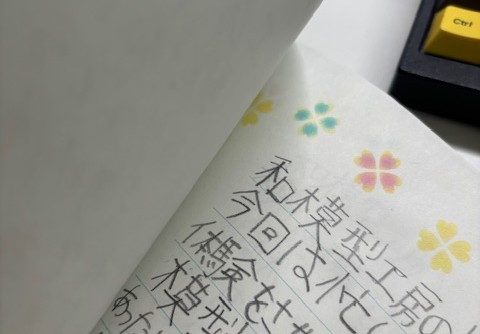 Ctrl
和模型工房の
今回は忙
体験をさ
模型
あた